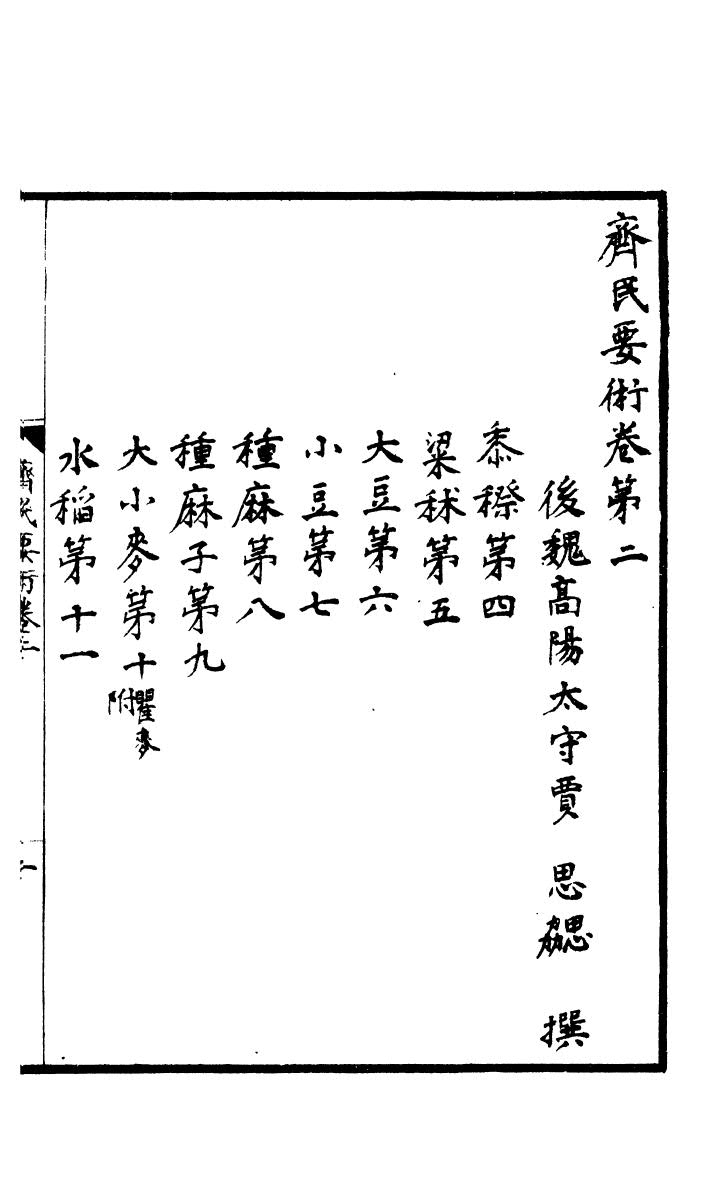 齊民要術卷第二
後魏髙陽太守賈 思勰 撰
黍穄第四
粱秫第五
大豆第六
小豆第七
種麻第八
種麻子第九
大小麥第十瞿麥附
水稻第十一
齊民要術卷二
一